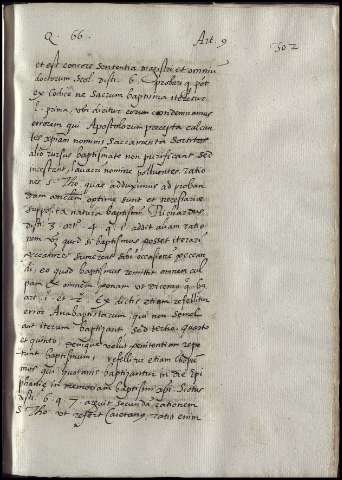 Q. 66. Art. 9 502
et est concors sententia magistri et omnium
doctorum Scol. disti. 6. probari q. pot
ex Codice ne Sacrum baptisma iteretur
l. prima, ubi dicitur eorum condemnamus
errorem qui Apostolorum precepta calcan
tes xpiani nominis Sacramenta sortitos
alio rursus baptismate non purificant sed
incestant, lavacri nomine polluentes. ratio
nes S. Tho. quas adduximus ad proban
dam optime sunt et necessariae
supposita natura baptismi. Ricardus
disti. 3. art. 4. q. 1. addit aliam ratio
nem quod si baptismus posset iterari
peccatores sumerent sibi occasionem peccan
di, eo quod baptismus remittit omnem cul
pam et omnem poenam ut dicetur q. 69
art. 1. et 2. Ex dictis etiam refellitur
error Anabaptistarum, qui non semel
aut iterum baptizant sed tertio, quarto
et quinto, denique volunt penitentiam repe
tunt baptismum, refellitur etiam
mos qui quotannis baptizantur in die Epi
phaniae in memoriam baptismi xpi. Scotus
disti. 6. q. 7. arguit secundam rationem
S. Tho. ut refert Caietanus, ratio enim